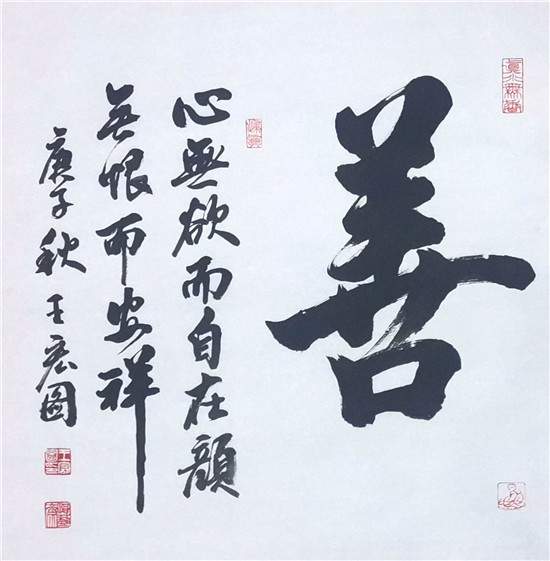 善
心無欲而自在顔
無恨而安祥
庚子秋 王宏图